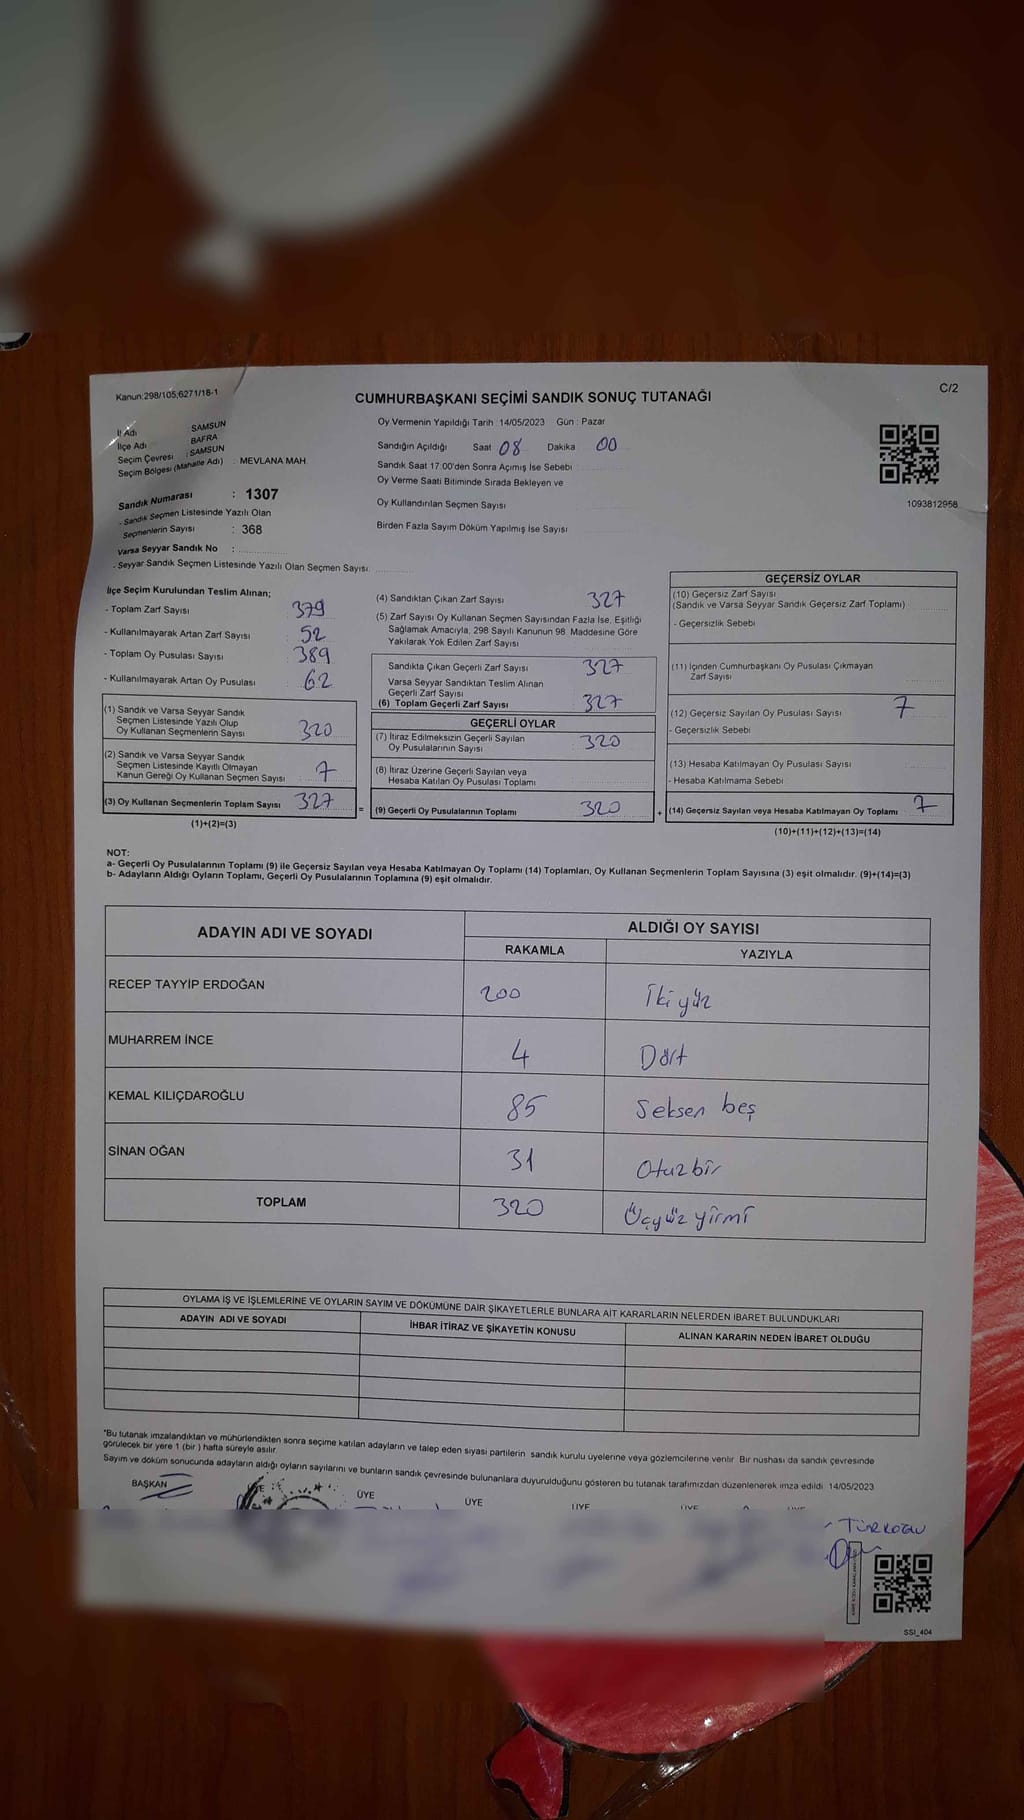 Kanun:298/105;6271/18-1
CUMHURBAŞKANI SEÇİMİ SANDIK SONUÇ TUTANAĞI
C/2
İl Adı : SAMSUN
İlçe Adı : BAFRA
Seçim Çevresi : SAMSUN
Seçim Bölgesi (Mahalle Adı) : MEVLANA MAH.
Sandık Numarası : 1307
- Sandık Seçmen Listesinde Yazılı Olan
Seçmenlerin Sayısı : 368
Varsa Seyyar Sandık No :
- Seyyar Sandık Seçmen Listesinde Yazılı Olan Seçmen Sayısı:
Oy Vermenin Yapıldığı Tarih 14/05/2023 Gün : Pazar
Sandığın Açıldığı Saat 08 Dakika 00
Sandık Saat 17.00'den Sonra Açımış İse Sebebi
Oy Verme Saati Bitiminde Sırada Bekleyen ve
Oy Kullandırılan Seçmen Sayısı
Birden Fazla Sayım Döküm Yapılmış İse Sayısı
1093812958
İlçe Seçim Kurulundan Teslim Alınan;
- Toplam Zarf Sayısı 379
- Kullanılmayarak Artan Zarf Sayısı 52
- Toplam Oy Pusulası Sayısı 389
- Kullanılmayarak Artan Oy Pusulası 62
(1) Sandık ve Varsa Seyyar Sandık
Seçmen Listesinde Yazılı Olup
Oy Kullanan Seçmenlerin Sayısı 320
(2) Sandık ve Varsa Seyyar Sandık
Seçmen Listesinde Kayıtlı Olmayan
Kanun Gereği Oy Kullanan Seçmen Sayısı 7
(3) Oy Kullanan Seçmenlerin Toplam Sayısı 327
(1)+(2)=(3)
=
(4) Sandıktan Çıkan Zarf Sayısı 327
(5) Zarf Sayısı Oy Kullanan Seçmen Sayısından Fazla İse, Eşitliği
Sağlamak Amacıyla, 298 Sayılı Kanunun 98. Maddesine Göre
Yakılarak Yok Edilen Zarf Sayısı
Sandıkta Çıkan Geçerli Zarf Sayısı 327
Varsa Seyyar Sandıktan Teslim Alınan
Geçerli Zarf Sayısı
(6) Toplam Geçerli Zarf Sayısı 327
GEÇERLİ OYLAR
(7) İtiraz Edilmeksizin Geçerli Sayılan
Oy Pusulalarının Sayısı 320
(8) İtiraz Üzerine Geçerli Sayılan veya
Hesaba Katılan Oy Pusulası Toplamı
(9) Geçerli Oy Pusulalarının Toplamı 320
+
GEÇERSİZ OYLAR
(10) Geçersiz Zarf Sayısı
(Sandık ve Varsa Seyyar Sandık Geçersiz Zarf Toplamı)
- Geçersizlik Sebebi
(11) İçinden Cumhurbaşkanı Oy Pusulası Çıkmayan
Zarf Sayısı
(12) Geçersiz Sayılan Oy Pusulası Sayısı 7
- Geçersizlik Sebebi
(13) Hesaba Katılmayan Oy Pusulası Sayısı
- Hesaba Katılmama Sebebi
(14) Geçersiz Sayılan veya Hesaba Katılmayan Oy Toplamı 7
(10)+(11)+(12)+(13)=(14)
NOT:
a- Geçerli Oy Pusulalarının Toplamı (9) ile Geçersiz Sayılan veya Hesaba Katılmayan Oy Toplamı (14) Toplamları, Oy Kullanan Seçmenlerin Toplam Sayısına (3) eşit olmalıdır. (9)+(14)=(3)
b- Adayların Aldığı Oyların Toplamı, Geçerli Oy Pusulalarının Toplamına (9) eşit olmalıdır.
ADAYIN ADI VE SOYADI ALDIĞI OY SAYISI
RAKAMLA YAZIYLA
RECEP TAYYİP ERDOĞAN 200 İkiyüz
MUHARREM İNCE 4 Dört
KEMAL KILIÇDAROĞLU 85 Seksen beş
SİNAN OĞAN 31 Otuzbir
TOPLAM 320 Üçyüz yirmi
OYLAMA İŞ VE İŞLEMLERİNE VE OYLARIN SAYIM VE DÖKÜMÜNE DAİR ŞİKAYETLERLE BUNLARA AİT KARARLARIN NELERDEN İBARET BULUNDUKLARI
ADAYIN ADI VE SOYADI İHBAR İTİRAZ VE ŞİKAYETİN KONUSU ALINAN KARARIN NEDEN İBARET OLDUĞU
*Bu tutanak imzalandıktan ve mühürlendikten sonra seçime katılan adayların ve talep eden siyasi partilerin sandık kurulu üyelerine veya gözlemcilerine verilir. Bir nüshası da sandık çevresinde
görülecek bir yere 1 (bir) hafta süreyle asılır.
Sayım ve döküm sonucunda adayların aldığı oyların sayılarını ve bunların sandık çevresinde bulunanlara duyurulduğunu gösteren bu tutanak tarafımızdan düzenlenerek imza edildi. 14/05/2023
BAŞKAN ÜYE ÜYE ÜYE ÜYE ÜYE
TÜRKOĞLU
SSI_404